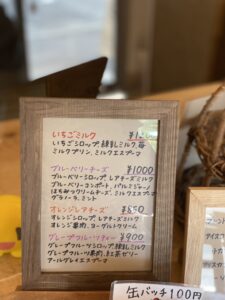 いちごミルク
いちごシロップ、練乳ミルク、苺
ミルクプリン、ミルクエスプーマ
ブルーベリーチーズ ¥1000
ブルーベリーシロップ、レアチーズミルク
ブルーベリーコンポート、パルミジャーノ
はちみつクリームチーズ、ミルクエスプーマ
グラノーラ、ミント
オレンジレアチーズ ¥850
オレンジシロップ、レアチーズミルク
オレンジ果肉、ヨーグルトクリーム
グレープフルーツティー ¥900
グレープフルーツシロップ、練乳ミルク
グレープフルーツ果肉、紅茶ゼリー
アールグレイエスプーマ
缶バッチ100円